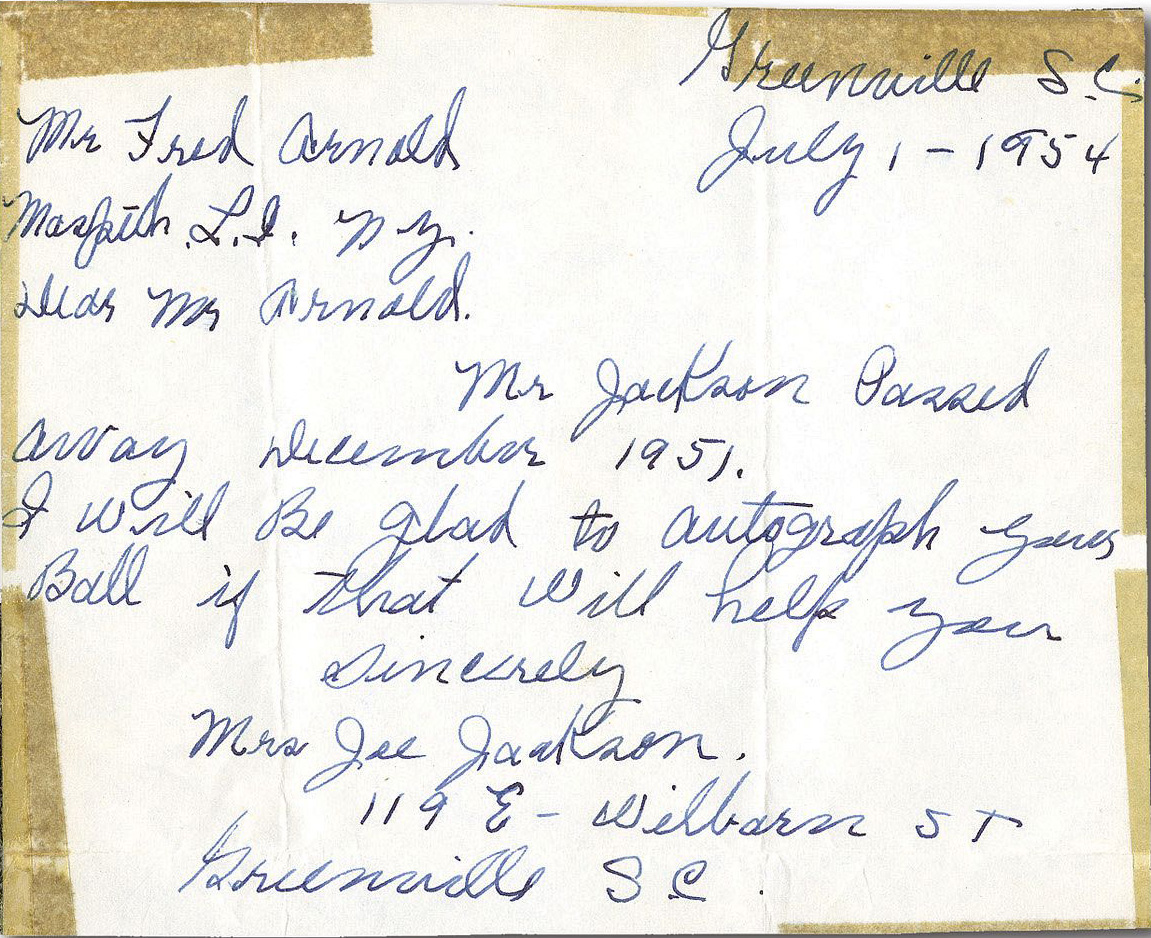 Greenville S.C.
July 1 - 1954
Mr Fred Arnold
Maspeth. L.I. N.Y.
Dear Mr Arnold.
Mr Jackson Passed
away December 1951.
I will Be glad to autograph your
Ball if that will help you
Sincerely
Mrs Joe Jackson.
119 E - Wilborn ST
Greenville S C.